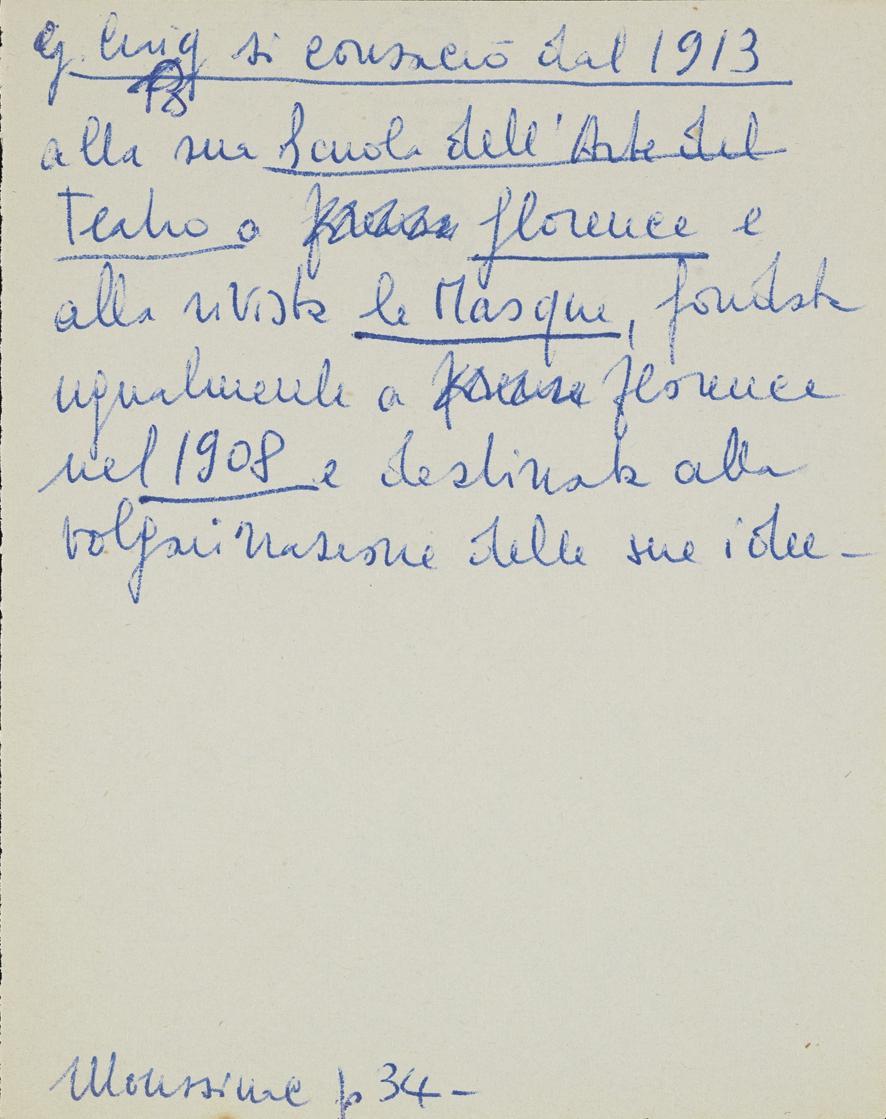 G. Craig si consacrò dal 1913
alla sua Scuola dell'Arte del
Teatro a Florence e
alla rivista le Masque, fondata
ugualmente a Florence
nel 1908 e destinata alla
volgarizzazione delle sue idee –
Moussinac p 34 –